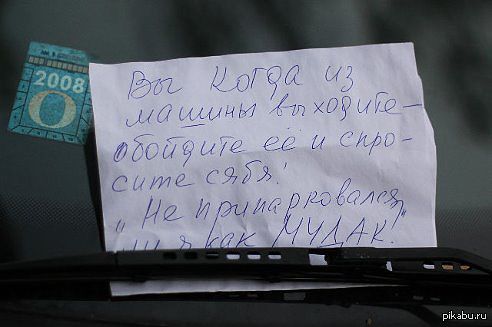 2008
О
Вы когда из
машины выходите -
обойдите её и спро-
сите сябя!
"Не припарковался
ли я как МУДАК!"
pikabu.ru